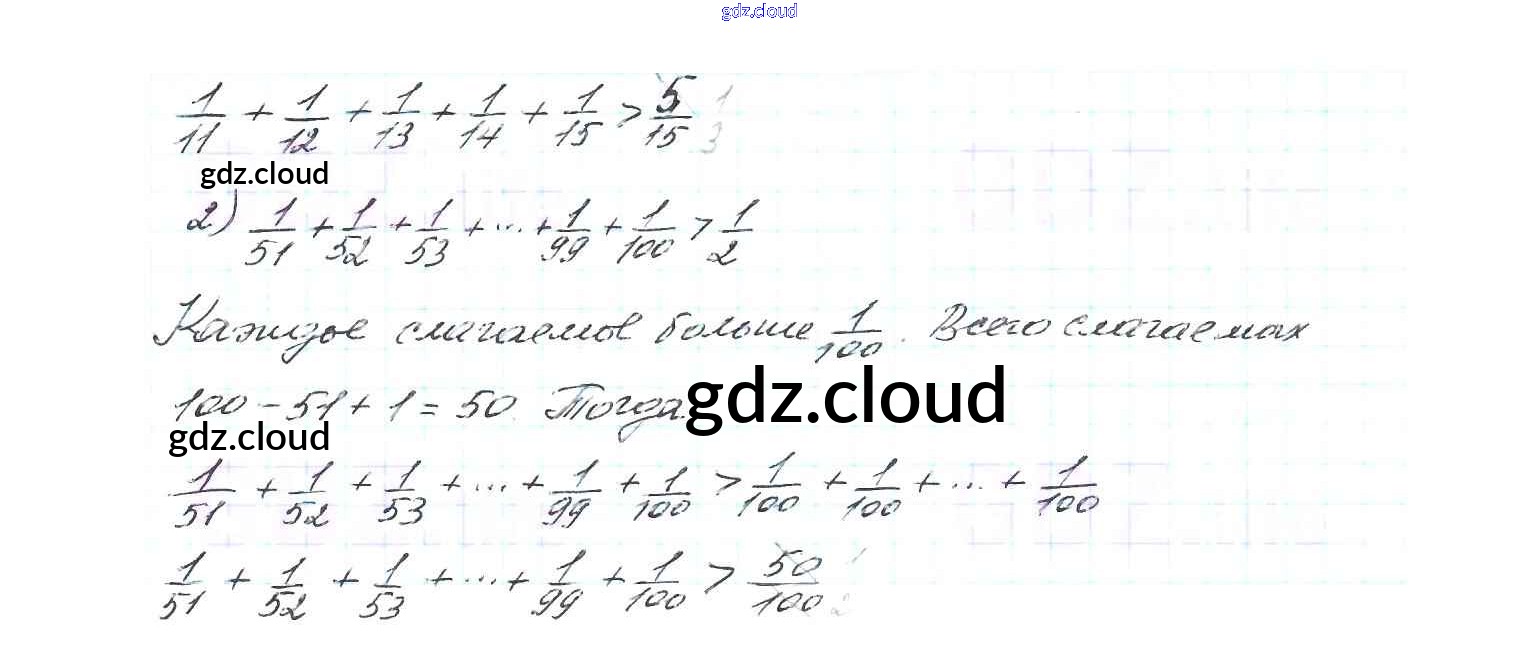 gdz.cloud
1/11 + 1/12 + 1/13 + 1/14 + 1/15 > 5/15 1/3
gdz.cloud
2) 1/51 + 1/52 + 1/53 + ... + 1/99 + 1/100 > 1/2
Каждое слагаемое больше 1/100. Всего слагаемах
100 - 51 + 1 = 50. Тогда gdz.cloud
gdz.cloud
1/51 + 1/52 + 1/53 + ... + 1/99 + 1/100 > 1/100 + 1/100 + ... + 1/100
1/51 + 1/52 + 1/53 + ... + 1/99 + 1/100 > 50/100 1/2